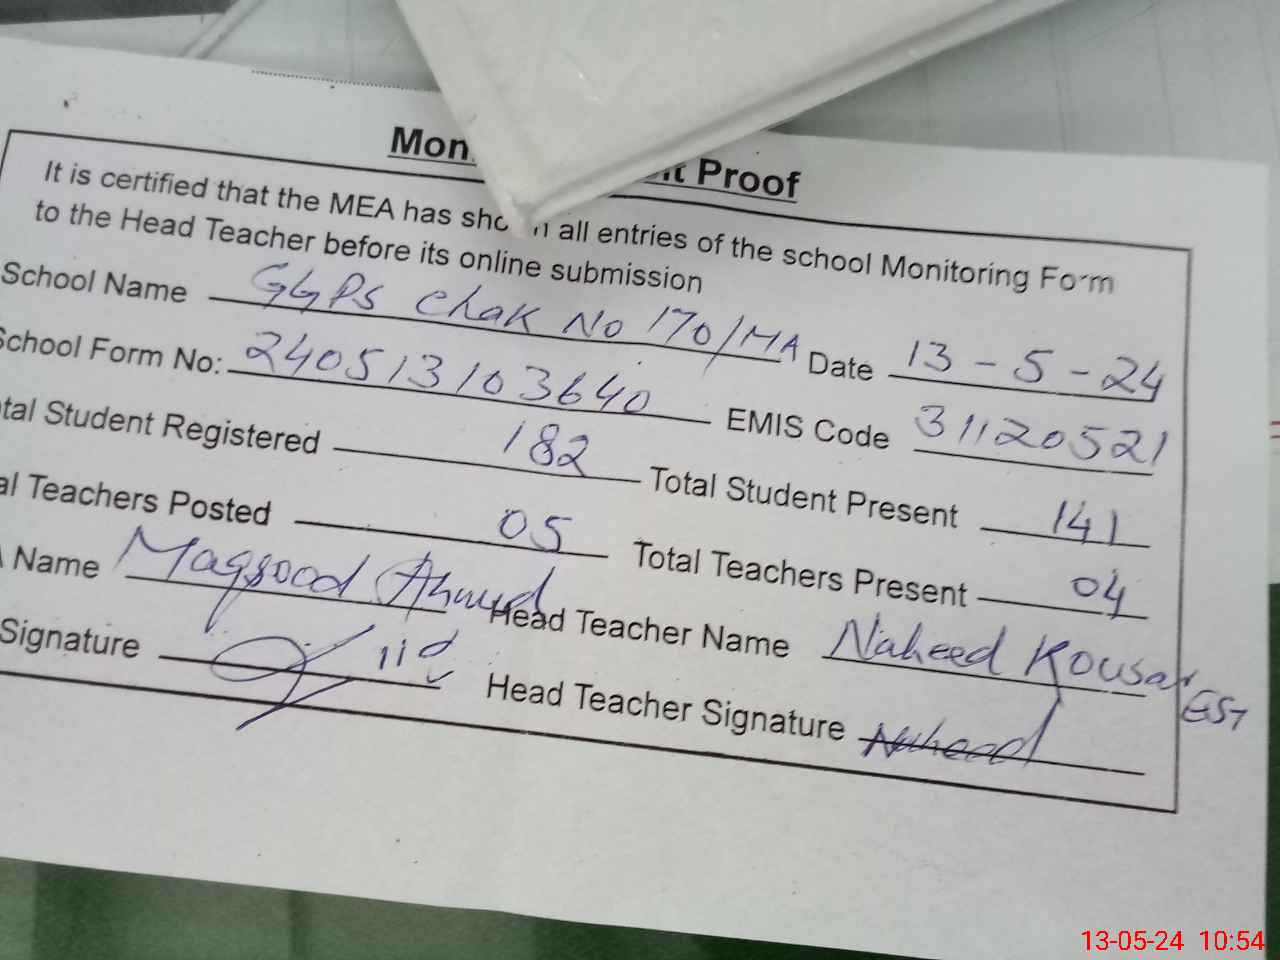 Mon it Proof
It is certified that the MEA has sho n all entries of the school Monitoring Form
to the Head Teacher before its online submission
School Name GGPS Chak No 170/MA Date 13-5-24
School Form No: 240513103640 EMIS Code 31120521
tal Student Registered 182 Total Student Present 141
al Teachers Posted 05 Total Teachers Present 04
Name Maqsood Ahmed Head Teacher Name Naheed Kousar EST
Signature Head Teacher Signature Naheed
13-05-24 10:54